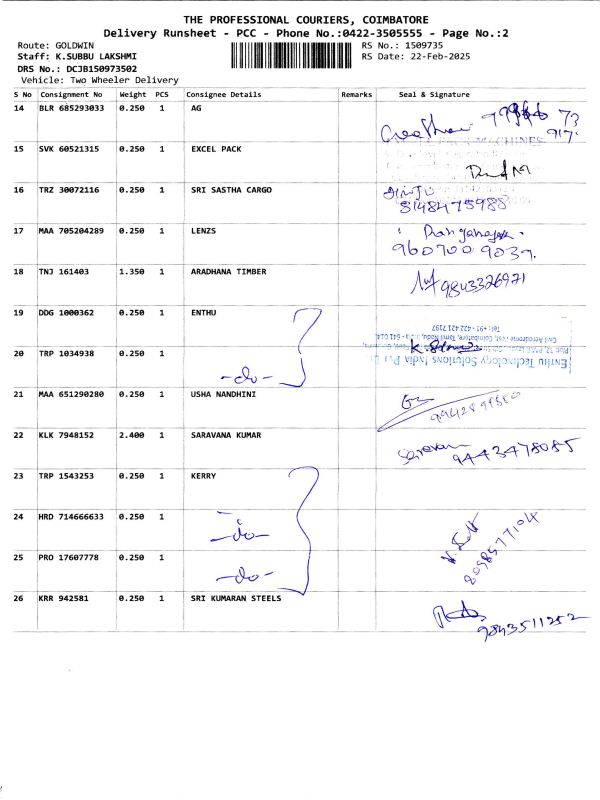 THE PROFESSIONAL COURIERS, COIMBATORE
Delivery Runsheet - PCC - Phone No.:0422-3505555 - Page No.:2
Route: GOLDWIN RS No.: 1509735
Staff: K.SUBBU LAKSHMI RS Date: 22-Feb-2025
DRS No.: DCJB150973502
Vehicle: Two Wheeler Delivery
S No Consignment No Weight PCS Consignee Details Remarks Seal & Signature
14 BLR 685293033 0.250 1 AG
15 SVK 60521315 0.250 1 EXCEL PACK
16 TRZ 30072116 0.250 1 SRI SASTHA CARGO
8148475988
17 MAA 705204289 0.250 1 LENZS
9607009037.
18 TNJ 161403 1.350 1 ARADHANA TIMBER 9843326971
19 DDG 1000362 0.250 1 ENTHU
Tel: +91 - 422 421 7197
Civil Aerodrome Post, Coimbatore, Tamil Nadu, India - 641 014
20 TRP 1034938 0.250 1
Enthu Technology Solutions India Pvt
-do-
21 MAA 651290280 0.250 1 USHA NANDHINI
22 KLK 7948152 2.400 1 SARAVANA KUMAR
Saravan 9443478085
23 TRP 1543253 0.250 1 KERRY
24 HRD 714666633 0.250 1
-do-
25 PRO 17607778 0.250 1
-do-
26 KRR 942581 0.250 1 SRI KUMARAN STEELS
9843511252